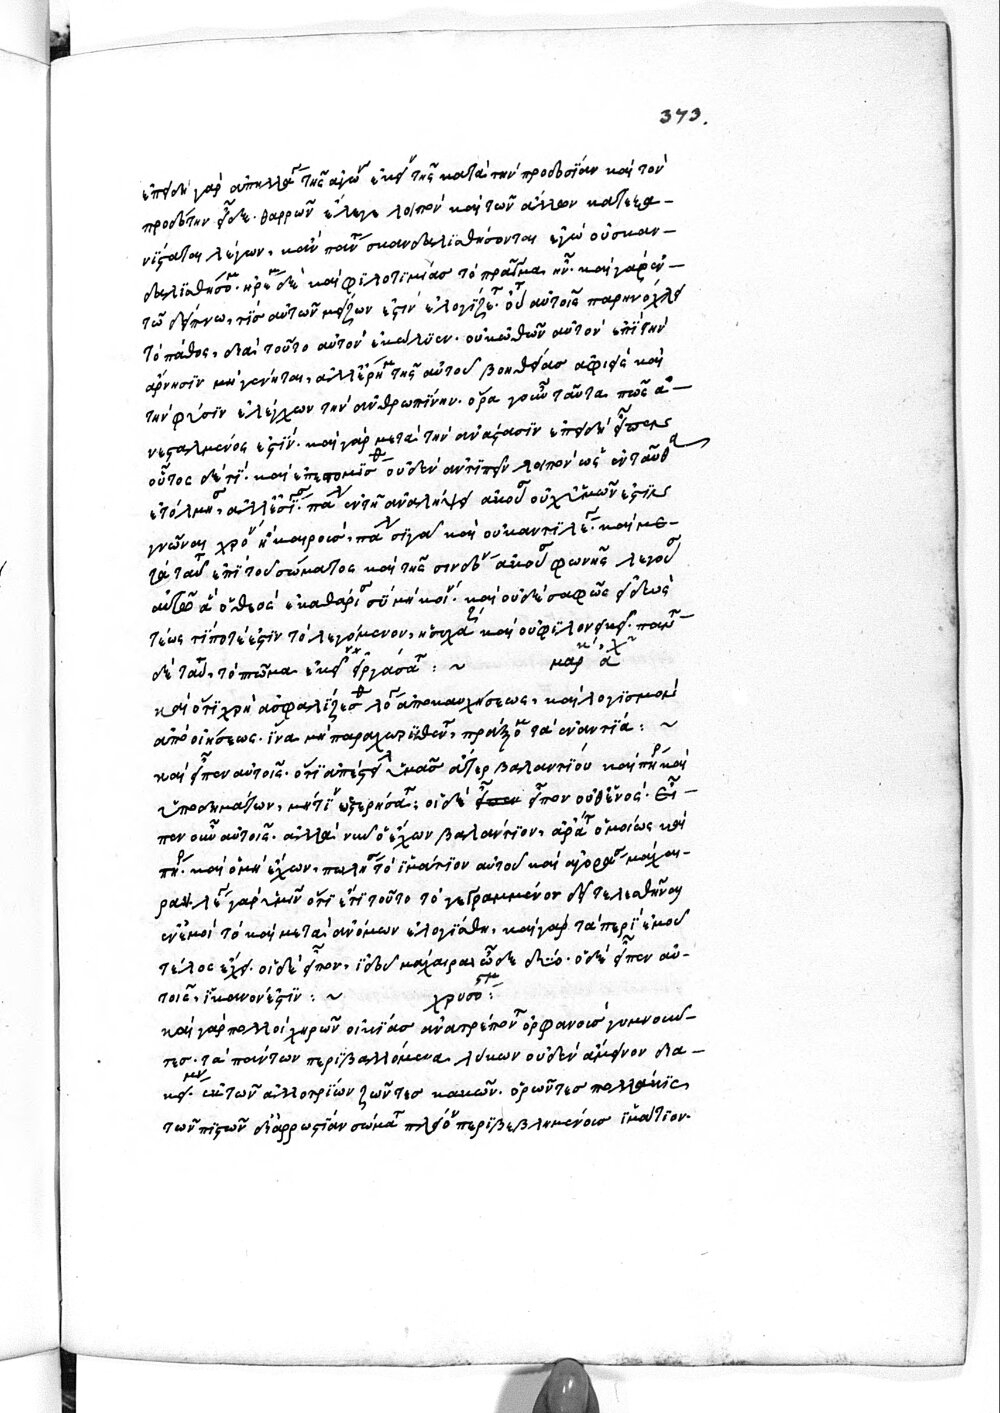 373.
ἐπειδὴ γὰρ ἀπηλλά τῆς ἀγω ἐκεί τῆς κατὰ τὴν προδοσίαν καὶ τὸν
προδότην εἶδε. θαρρῶν ἔλεγε λοιπὸν καὶ τῶν ἄλλων κατεξα-
νίσταται λέγων, κἂν πάν σκανδαλισθήσονται ἐγὼ οὐ σκαν-
δαλισθήσο. ἠρέ δὲ καὶ φιλοτιμίας τὸ πρᾶγμα ἦν. καὶ γὰρ ἐν
τῶ δείπνω, τίς αὐτῶν μείζων ἐστὶν ἐλογίζε. οὕ αὐτοῖς παρηνόχλει
τὸ πάθος, διὰ τοῦτο αὐτὸν ἐκώλυεν. οὐκ ὠθῶν αὐτὸν ἐπὶ τὴν
ἄρνησιν μὴ γένηται, ἀλλ' ἔρη τῆς αὐτοῦ βοηθείας ἀφιεὶς καὶ
τὴν φύσιν ἐλέγχων τὴν ἀνθρωπίνην. ὅρα γοῦν ταῦτα πῶς
νεσταλμένος ἐστίν. καὶ γὰρ μετὰ τὴν ἀνάστασιν ἐπειδὴ εἶπεν
οὗτος δὲ τί. καὶ ἐπεστομίσ οὐδὲν ἀντεῖπεν λοιπὸν ὡς ἐνταῦθα
ἐτόλμη, ἀλλ' ἐσί. πά ἐν τῆ ἀναλήψει ἀκού οὐχ ὑμῶν ἐστὶ
γνῶναι χρό ἢ καιροὺς, πά σιγᾶ καὶ οὐκ ἀντιλέ. καὶ με-
τὰ ταῦ ἐπὶ τοῦ δώματος καὶ τῆς σινδό ἀκού φωνῆς λεγού
αὐτῶ ἃ ὁ θεὸς ἐκαθάρι σὺ μὴ κοί. καὶ οὐδὲ σαφῶς εἰδὼς
τέως τί ποτέ ἐστιν τὸ λεγόμενον, ἡσυχά καὶ οὐ φιλονεικεῖ. παν
δὲ ταῦ, τὸ πτῶμα ἐκεῖ εἰργάσα : ~ μαρ
καὶ ὅτι χρὴ ἀσφαλίζεσθ λό ἀπὸ καυχήσεως, καὶ λογισμὸν
ἀπὸ οἰήσεως. ἵνα μὴ παραχωρηθέν, πράξο τὰ ἐναντία : ~
καὶ εἶπεν αὐτοῖς. ὅτι ἀπέστει ὑμᾶς ἄτερ βαλαντίου καὶ πή καὶ
ὑποδημάτων, μή τι ὑστερήσα; οἱ δὲ εἶπον οὐθενός. Εἶ-
πεν οὖν αὐτοῖς. ἀλλὰ νῦν ὁ ἔχων βαλάντιον, ἀρά ὁμοίως καὶ
πή. καὶ ὁ μὴ ἔχων, πωλή τὸ ἱμάτιον αὐτοῦ καὶ ἀγορά μάχαι-
ραν λέ γὰρ ὑμῖν ὅτι ἔτι τοῦτο τὸ γεγραμμένον δεῖ τελεσθῆναι
ἐν ἐμοὶ τὸ καὶ μετὰ ἀνόμων ἐλογίσθη, καὶ γὰρ τὰ περὶ ἐμοῦ
τέλος ἔχει. οἱ δὲ εἶπον, ἰδοῦ μάχαιραι ὧδε δύο. ὁ δὲ εἶπεν αὐ-
τοῖς, ἱκανόν ἐστιν : ~ χρυσο :
καὶ γὰρ πολλοὶ χηρῶν οἰκίας ἀνατρέπον ὀρφανοὺς γυμνοῦν-
τες. τὰ πάντων περιβαλλόμενοι λύκων οὐδὲν ἄμεινον δια-
κεί. ἐκ τῶν ἀλλοτρίων ζῶντες κακῶν. ὁρῶντες πολλάκις,
τῶν πιστῶν δι' ἀρρωστίαν σῶμα πλεῖον περιβεβλημένοις ἱμάτιον.